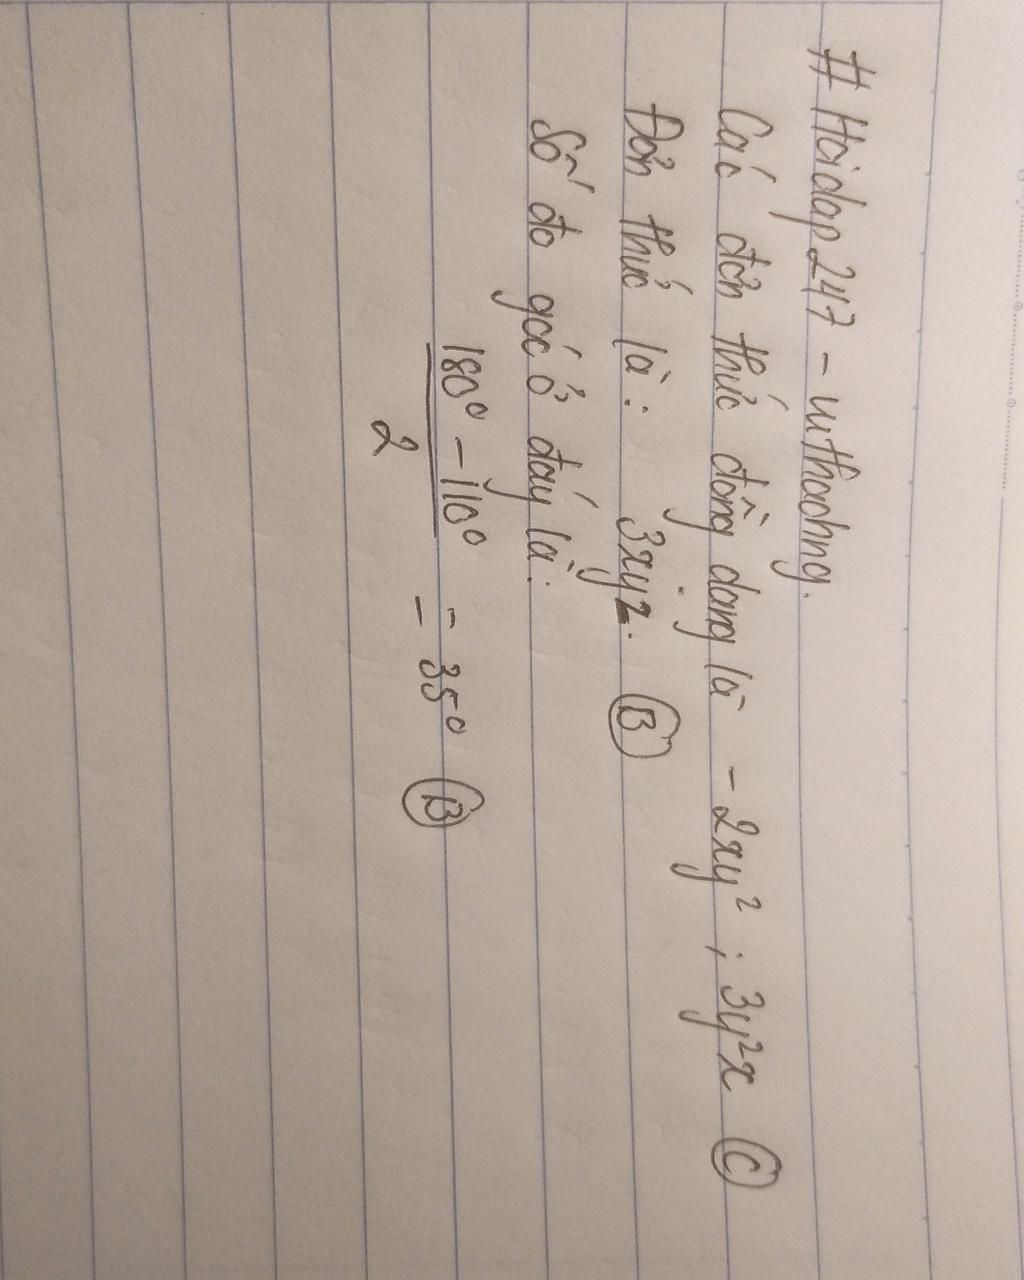 # Hoidap247 - uithachng.
Các đơn thức đồng dạng là - 2xy² ; 3y²x Ⓒ
Đơn thức là: 3xyz. Ⓑ
Số đo góc ở đáy là:
180° - 110°
= 35° Ⓑ
2